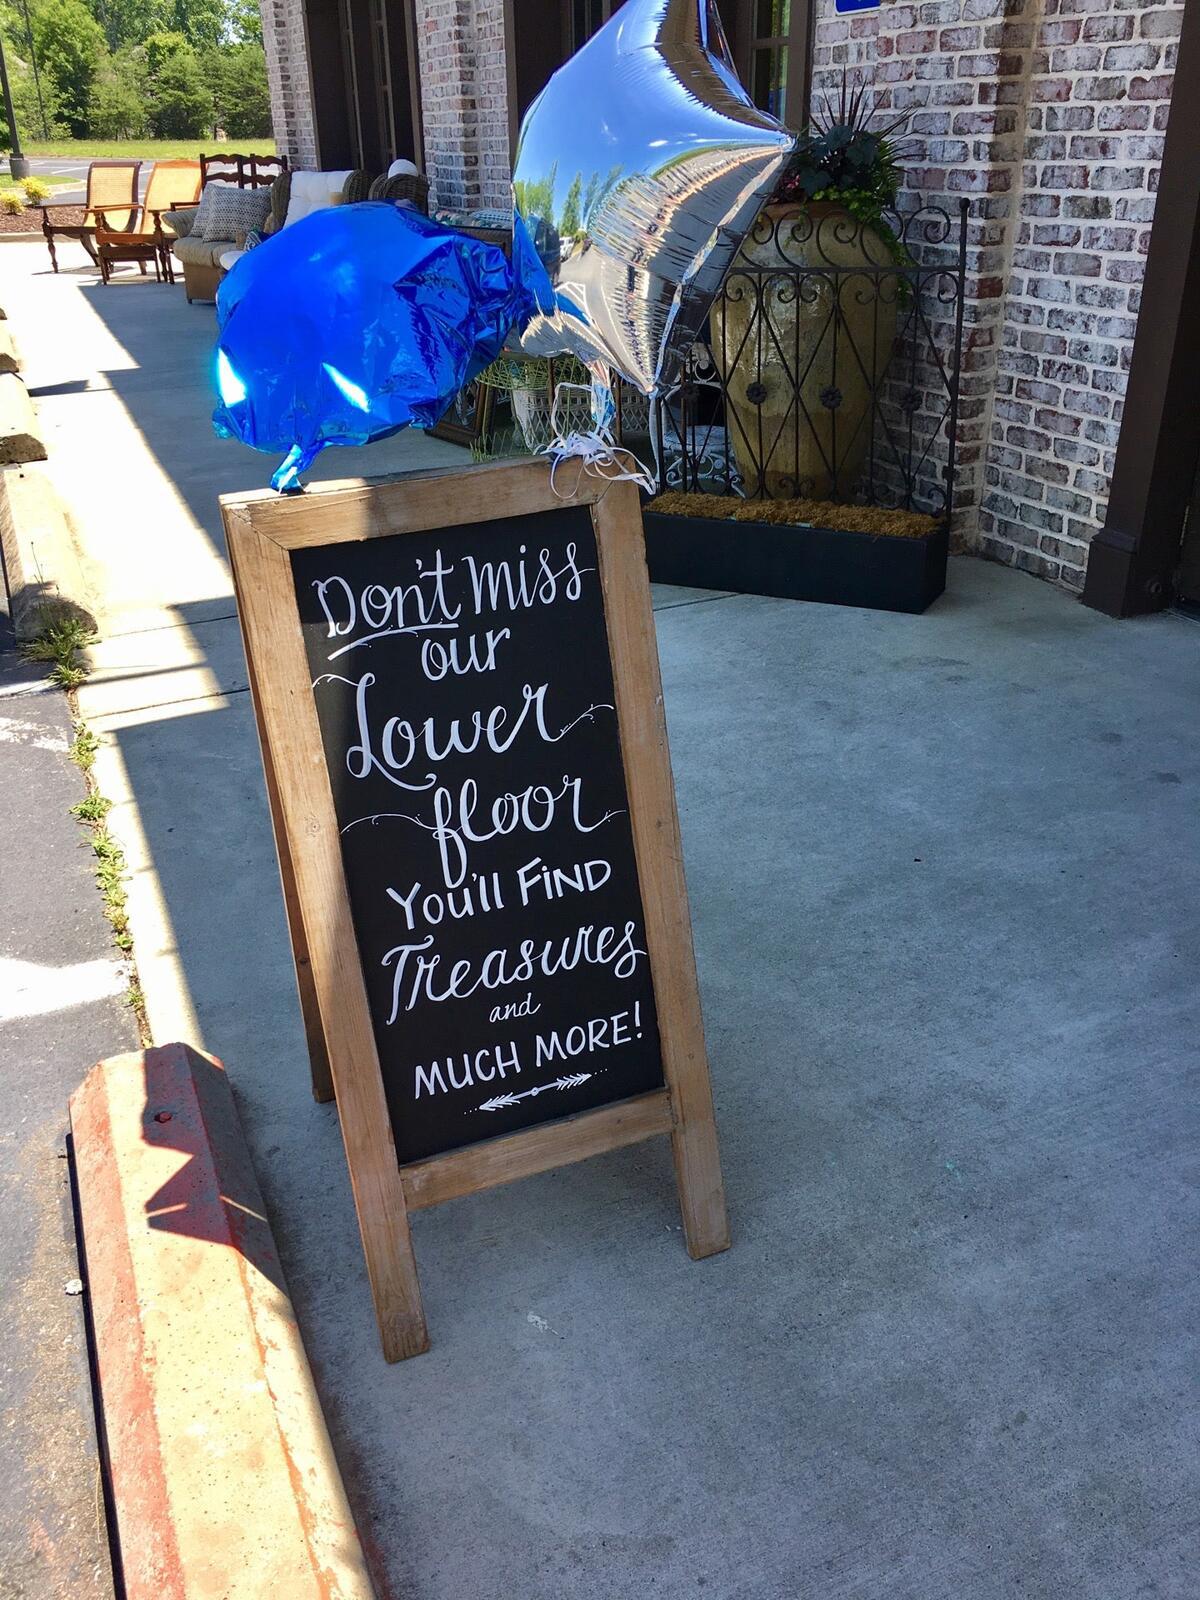 Don't miss
our
Lower
floor
You'll FiND
Treasures
and
MUCH MORE!